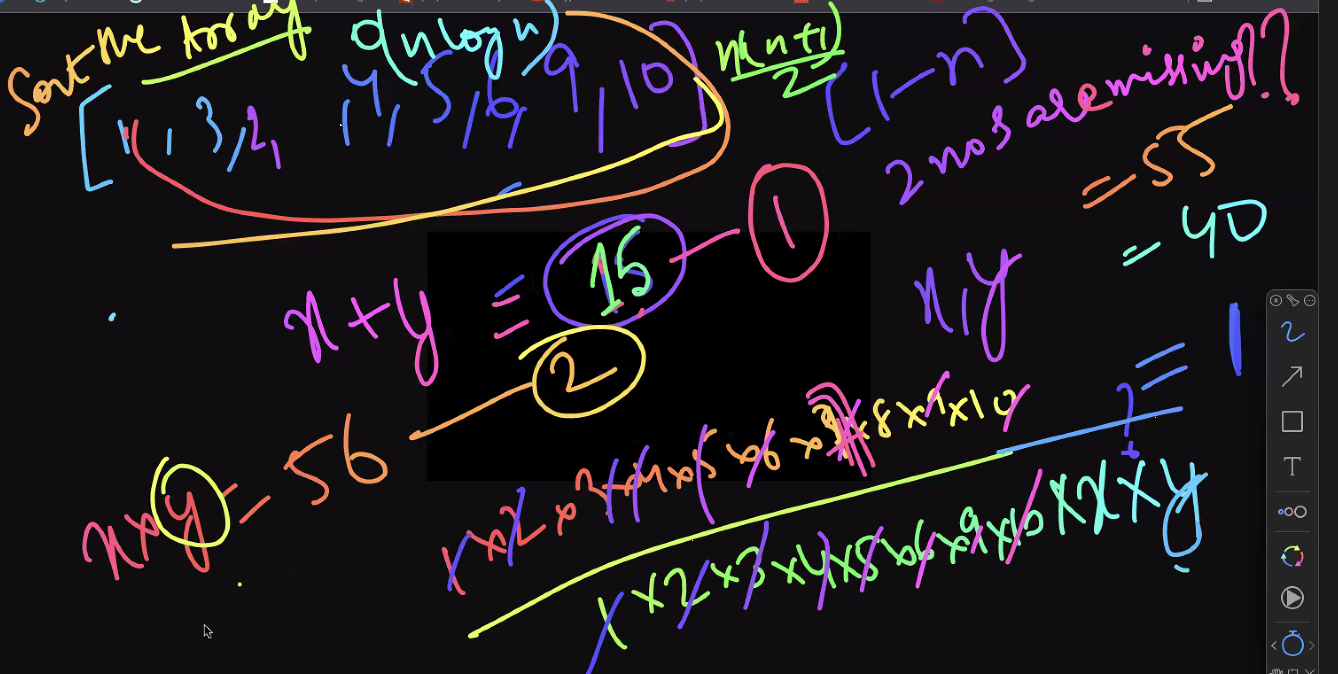 Sort the Array O(n log n)
[1, 3, 2, 4, 5, 6, 9, 10]
n(n+1)
2
[1-n]
2 nos are missing??
= 55
= 40
x+y = 15 - 1
x, y
2
x × y = 56
1×2×3×4×5×6×7×8×9×10 = 1
1×2×3×4×5×6×9×10×x×y
T